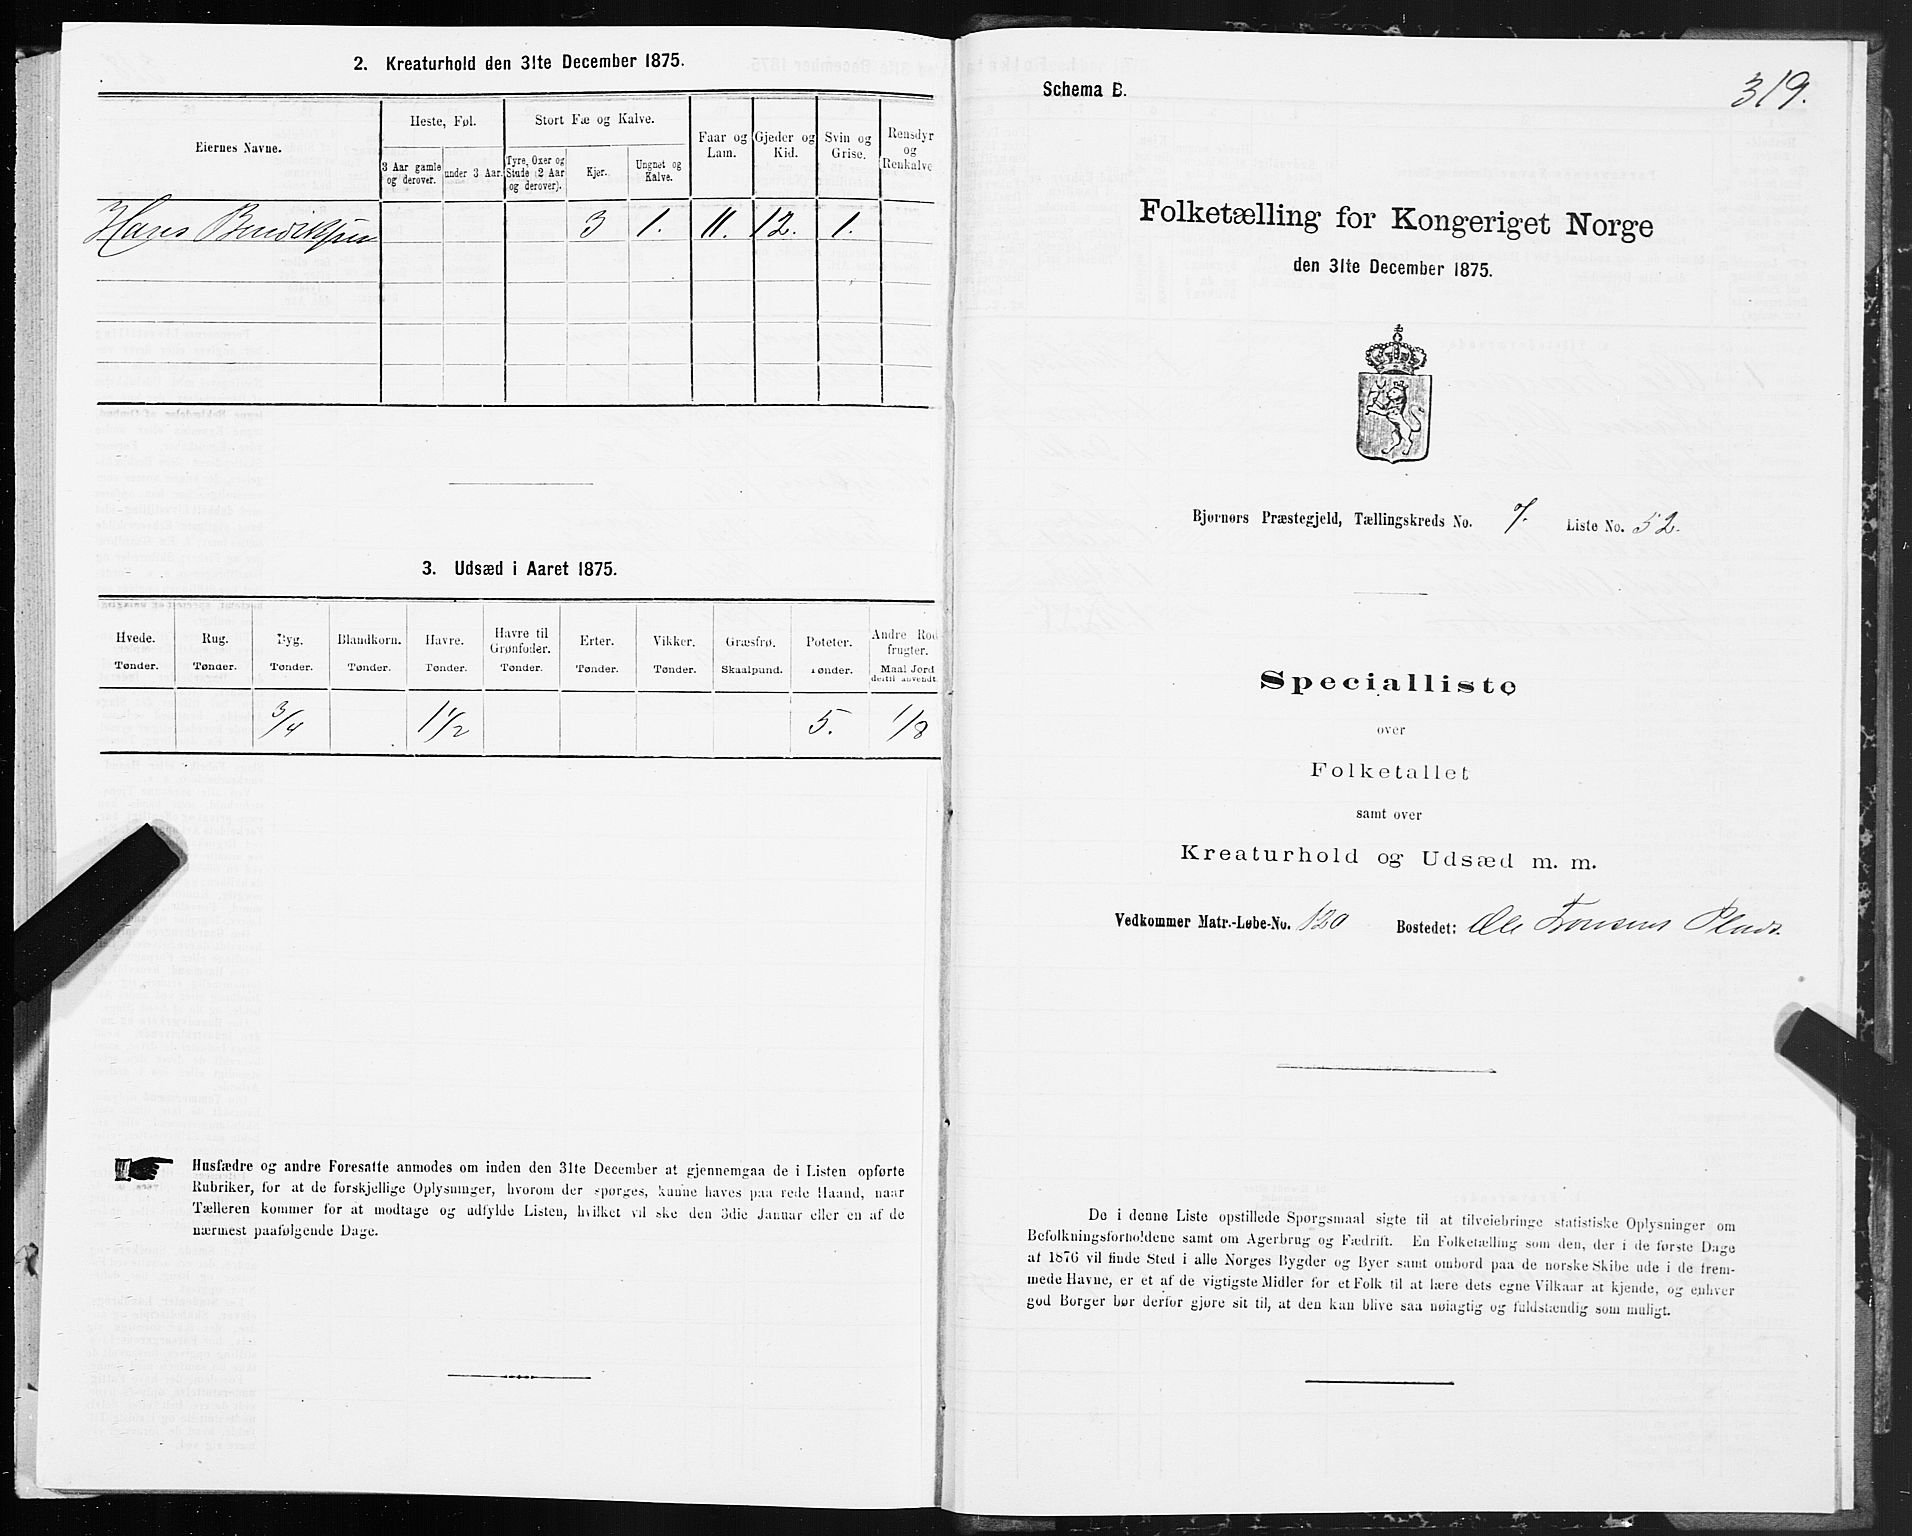 2. Kreaturhold den 31te December 1875.
Eiernes Navne.
Heste, Føl.
Stort Fæ og Kalve.
Faar og Lam.
Gjeder og Kid.
Svin og Grise.
Rensdyr og Renkalve
3 Aar gamle og derover.
under 3 Aar.
Tyre, Oxer og Stude (2 Aar og derover).
Kjer.
Ungnet og Kalve.
Hans 3 1. 11. 12. 1.
3. Udsæd i Aaret 1875.
Hvede. Rug. Byg. Blandkorn. Havre. Havre til Grønfoder. Erter. Vikker. Græsfrø. Poteter. Andre Rodfrugter.
Tønder. Tønder. Tønder. Tønder. Tønder. Tønder. Tønder. Tønder. Skaalpund. Tønder. Maal Jord dertil anvendt.
3/4 1 1/2 5. 1/8
Husfædre og andre Foresatte anmodes om inden den 31te December at gjennemgaa de i Listen opførte
Rubriker, for at de forskjellige Oplysninger, hvorom der spørges, kunne haves paa rede Haand, naar
Tælleren kommer for at modtage og udfylde Listen, hvilket vil ske den 3die Januar eller en af de
nærmest paafølgende Dage.
Schema B.
319.
Folketælling for Kongeriget Norge
den 31te December 1875.
Bjørnørs Præstegjeld, Tællingskreds No. 7. Liste No. 52.
Specialliste
over
Folketallet
samt over
Kreaturhold og Udsæd m. m.
Vedkommer Matr.-Løbe-No. 120 Bostedet: Ole Plads.
De i denne Liste opstillede Spørgsmaal sigte til at tilveiebringe statistiske Oplysninger om
Befolkningsforholdene samt om Agerbrug og Fædrift. En Folketælling som den, der i de første Dage
af 1876 vil finde Sted i alle Norges Bygder og Byer samt ombord paa de norske Skibe ude i de frem-
mede Havne, er et af de vigtigste Midler for et Folk til at lære dets egne Vilkaar at kjende, og enhver
god Borger bør derfor gjøre sit til, at den kan blive saa nøiagtig og fuldstændig som muligt.